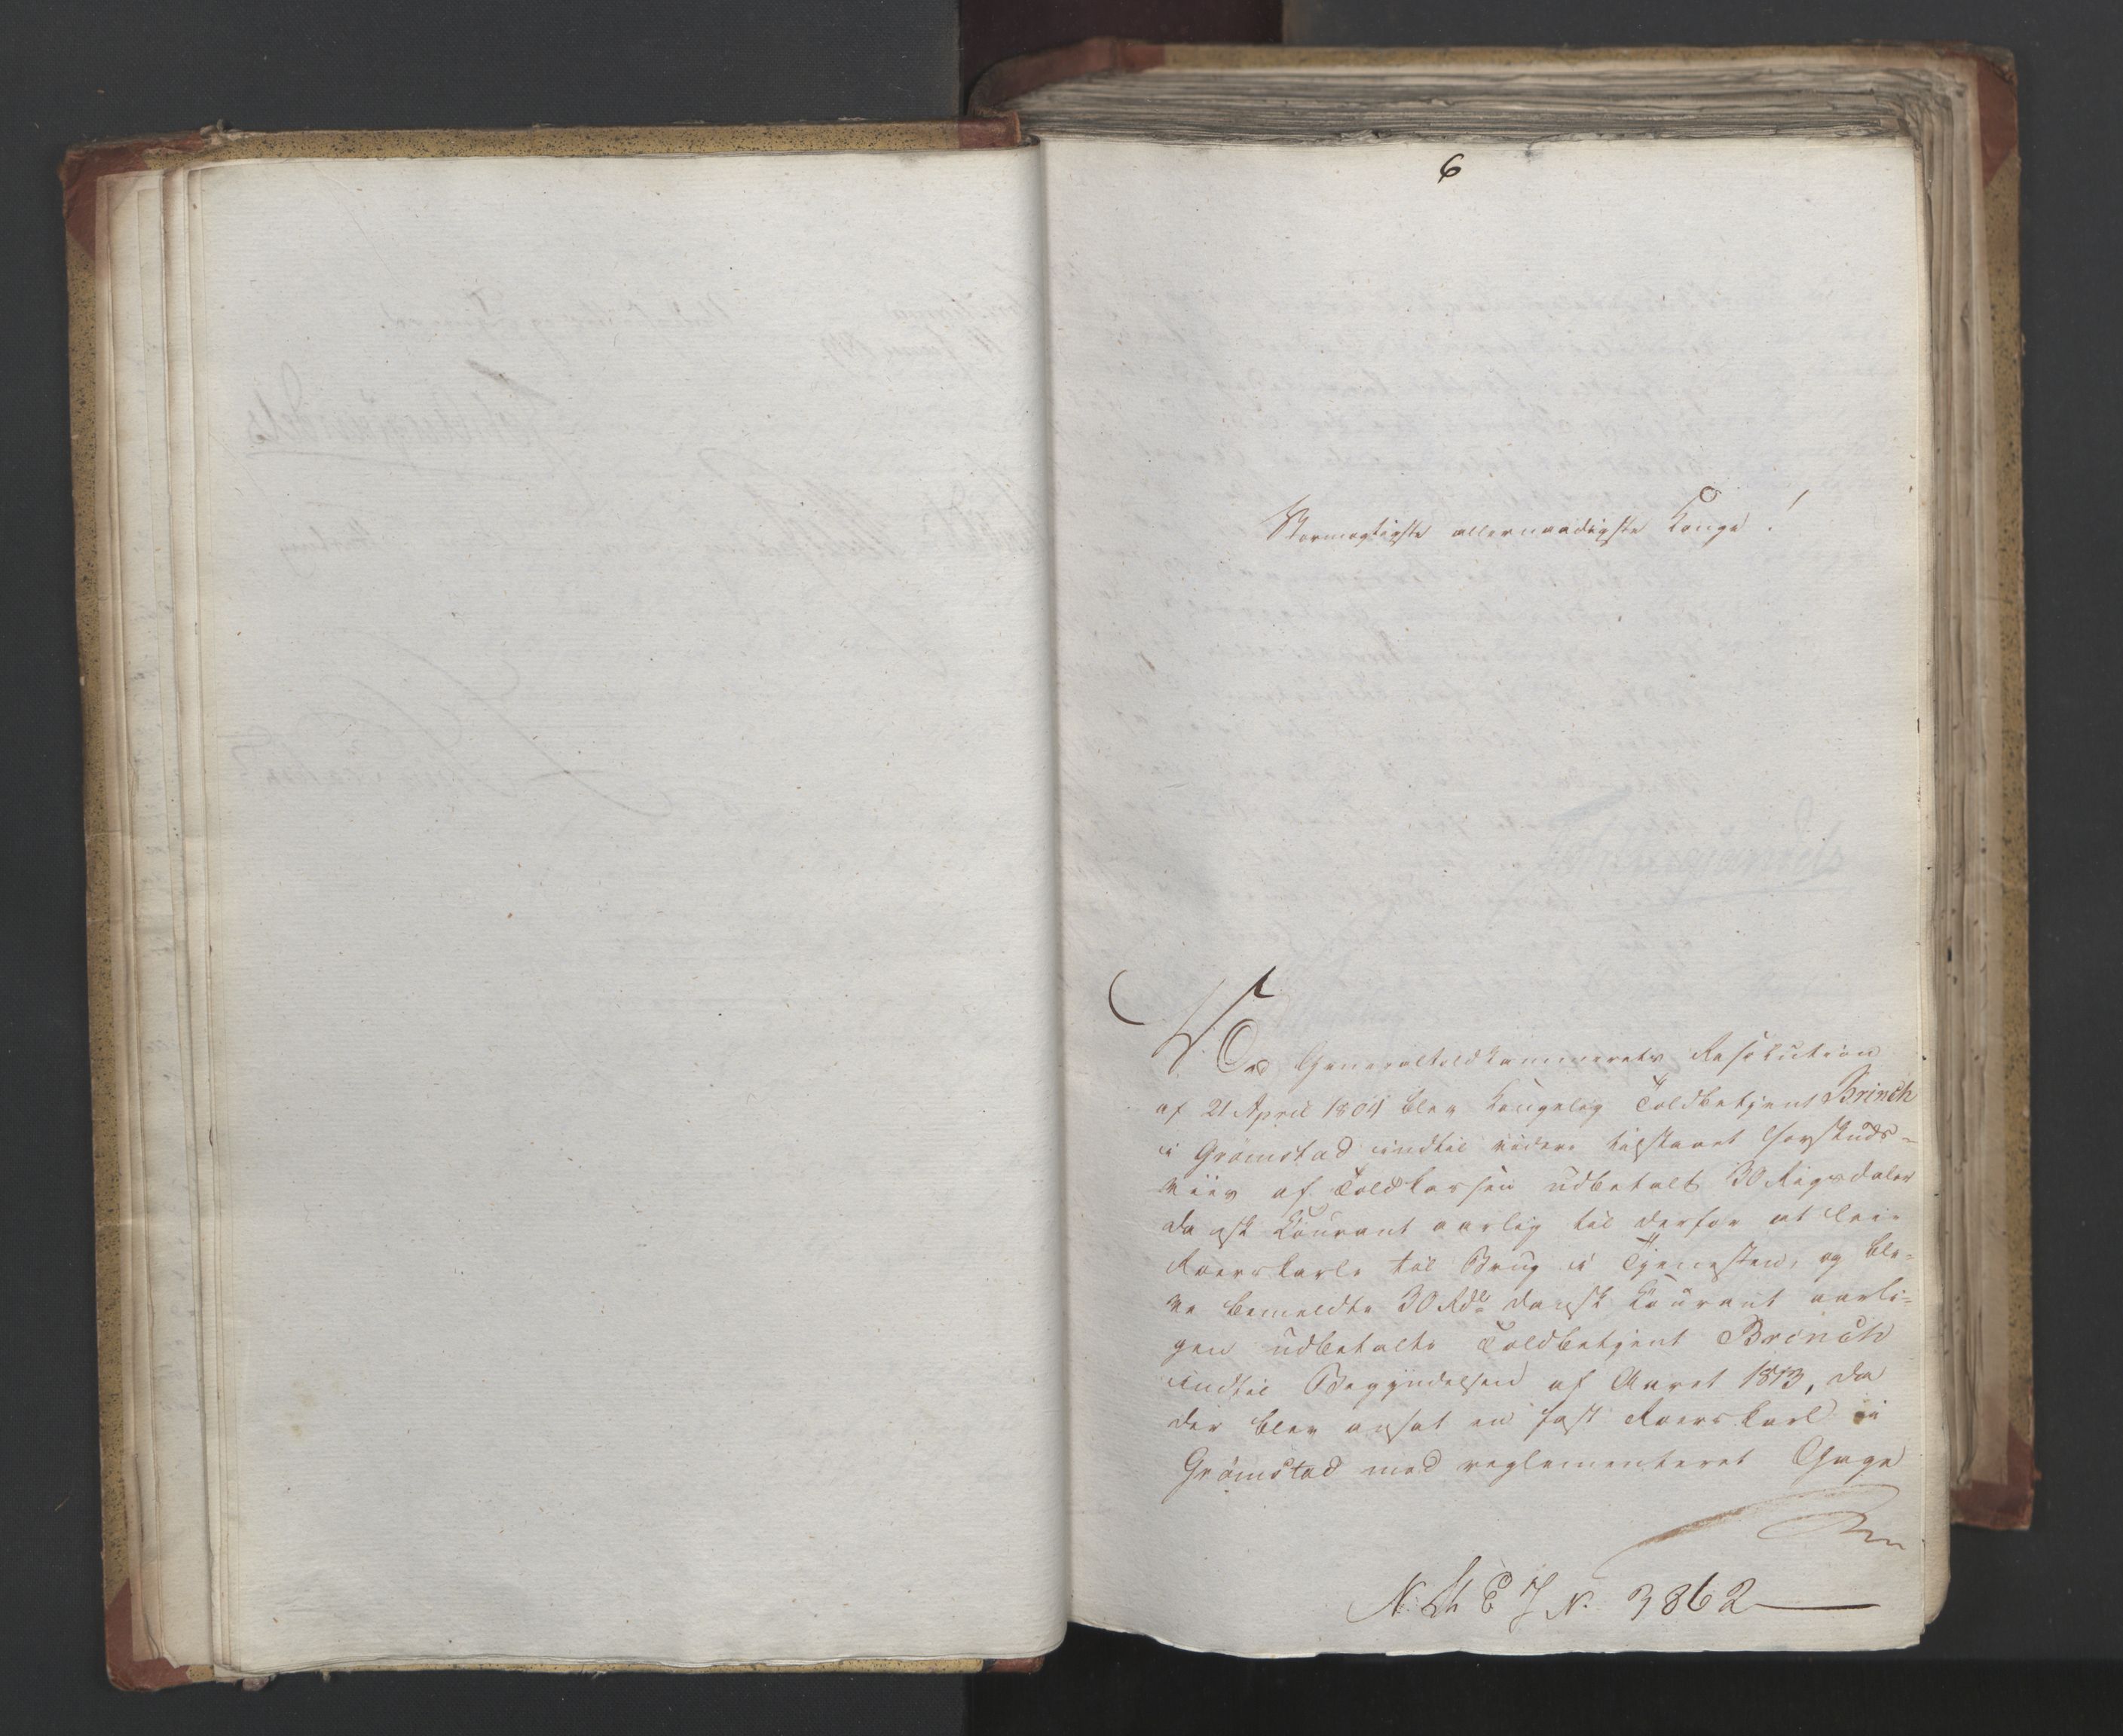 6
Stormægtigste allernaadigste Konge!
Ved Generaltoldkammerets Resolution
af 21 April 1804 blev Kongelig Toldbetjent Brinch
i Grømstad indtil videre tilstaaet forskuds-
viis af Toldkassen udbetalt 30 Rigsdaler
dansk Courant aarlig til derfor at leie
Roerskarle til Brug i Tjenesten, og ble-
ve bemeldte 30 Rdlr dansk Courant aarli-
gen udbetalte Toldbetjent Brinch
indtil Begyndelsen af Aaret 1813, da
der blev ansat en fast Roerskarl i
Grømstad med reglementeret Gage
N. St E J N. 3862